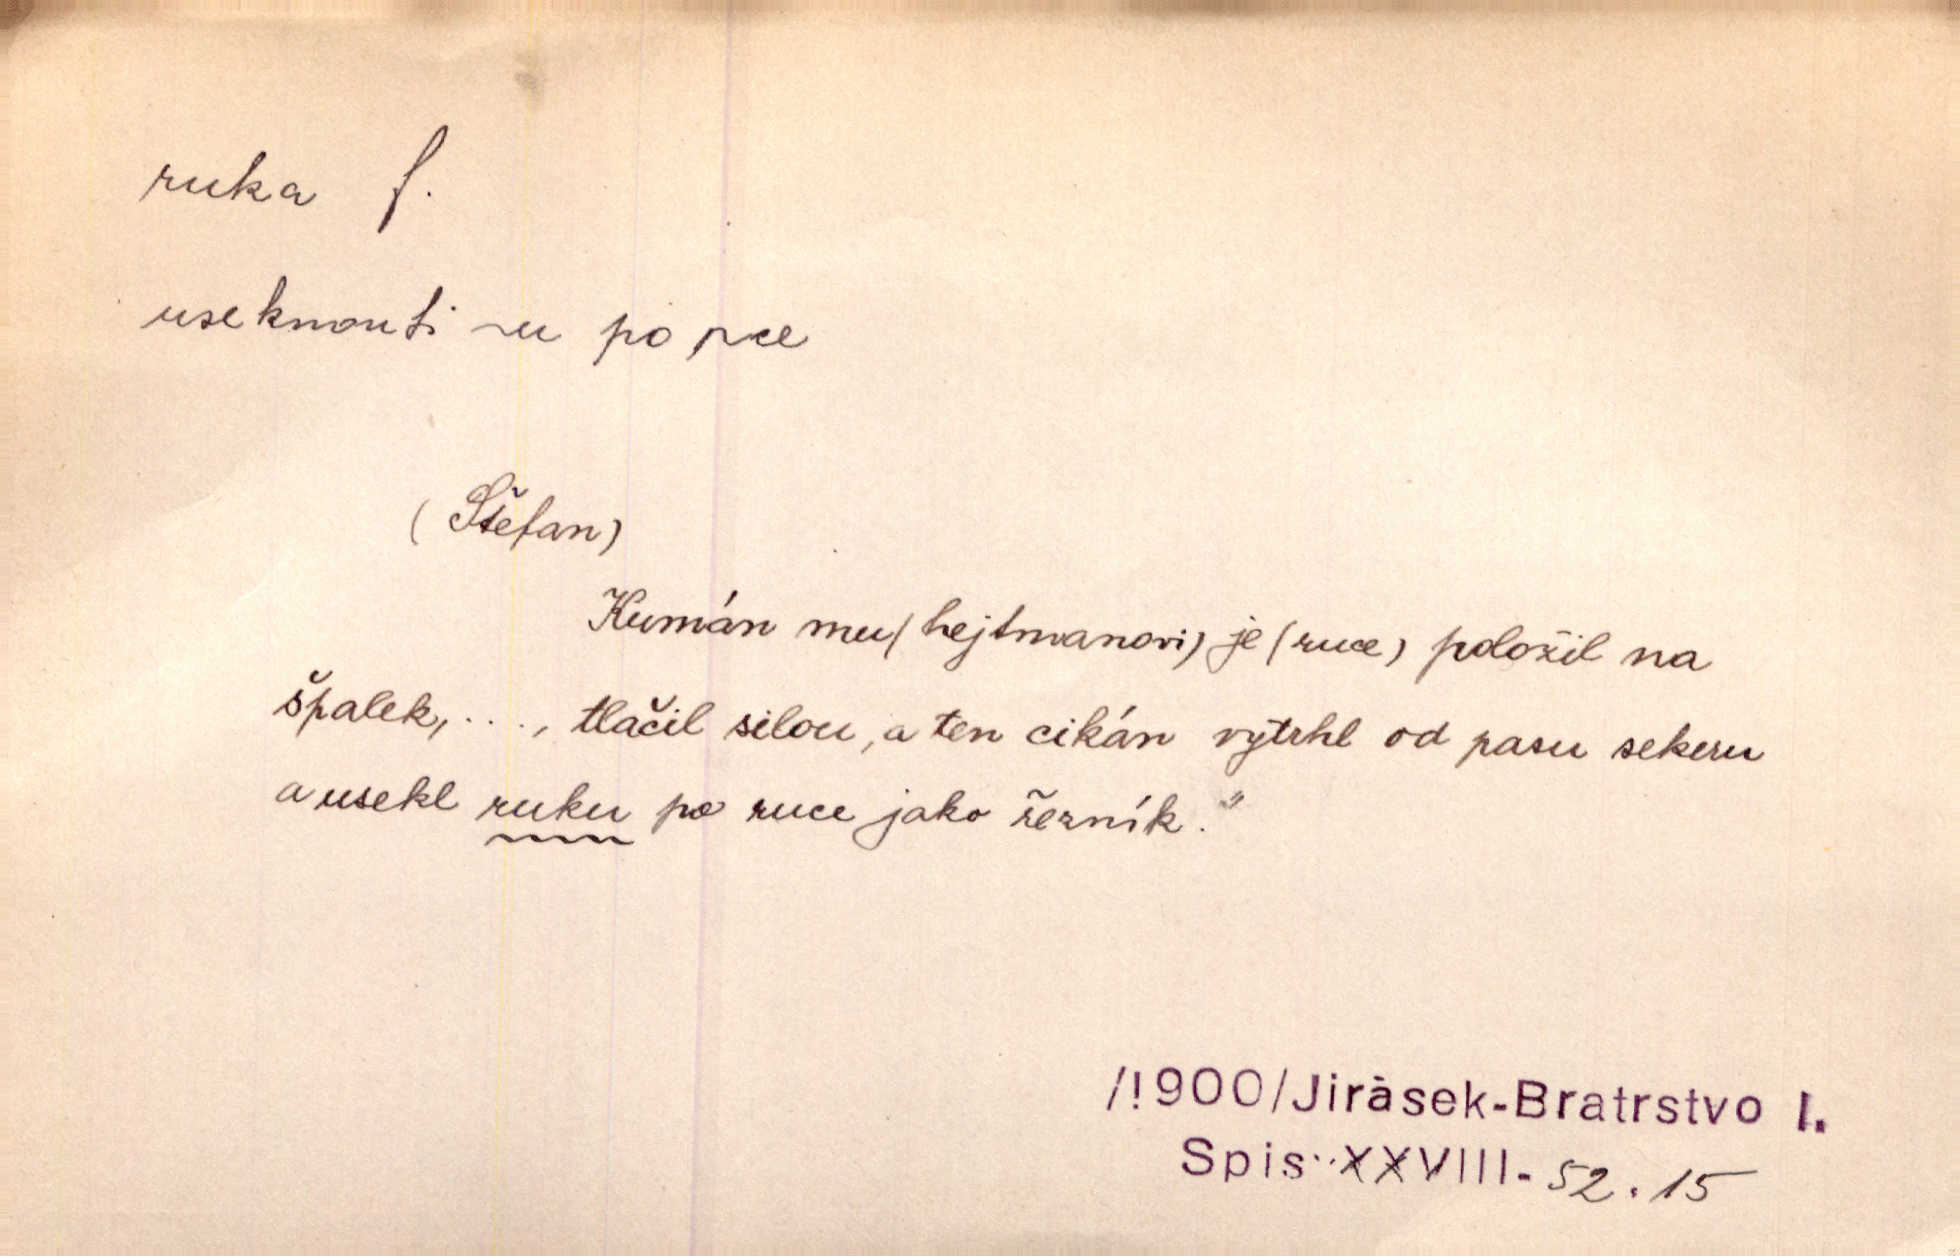 ruka f.
useknouti ~u po ~ce
(Štefan)
Kumán mu (hejtmanovi) je (ruce) položil na
špalek, ..., tlačil silou, a ten cikán vytrhl od pasu sekeru
a usekl ruku po ruce jako řezník."
/1900/Jirásek-Bratrstvo I.
Spis··XXVIII- 52. 15